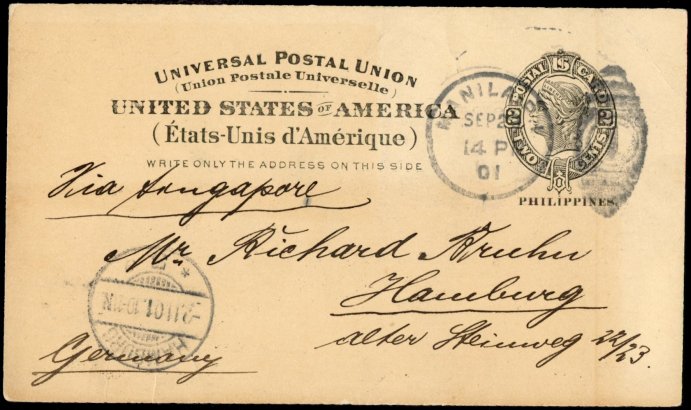 UNIVERSAL POSTAL UNION
(Union Postale Universelle)
UNITED STATES OF AMERICA
(États-Unis d'Amérique)
WRITE ONLY THE ADDRESS ON THIS SIDE
POSTAL CARD
TWO CENTS
PHILIPPINES.
MANILA
SEP 2
14 P
01
Via Singapore
Mr Richard Kruhn
Hamburg
alter Steinweg 22/23.
Germany
HAMBURG